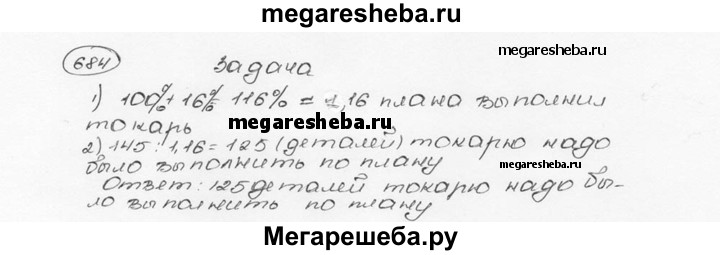 megaresheba.ru
684
Задача
megaresheba.ru
1) 100%+16%=116%=1,16 плана выполнил
токарь
megaresheba.ru
2) 145:1,16=125 (деталей) токарю надо
было выполнить по плану
megaresheba.ru
Ответ: 125 деталей токарю надо бы-
ло выполнить по плану
Мегарешеба.ру